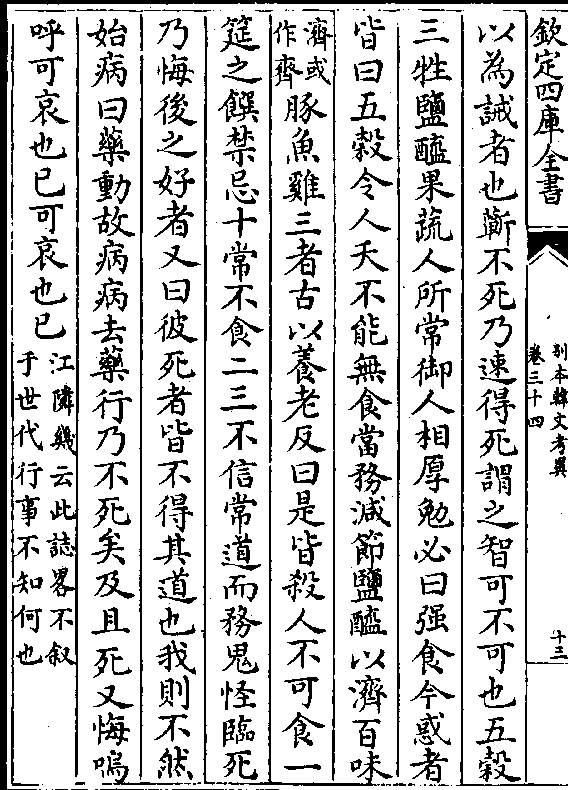 欽定四庫全書
别本韓文考異
卷三十四
十三
以為誡者也蘄不死乃速得死謂之智可不可也五穀
三牲鹽醯果蔬人所常御人相厚勉必曰强食今惑者
皆曰五穀令人夭不能無食當務減節鹽醯以濟百味
濟或
作齊
豚魚雞三者古以養老反曰是皆殺人不可食一
筵之饌禁忌十常不食二三不信常道而務鬼怪臨死
乃悔後之好者又曰彼死者皆不得其道也我則不然
始病曰藥動故病病去藥行乃不死矣及且死又悔嗚
呼可哀也已可哀也已
江隣幾云此誌畧不叙
于世代行事不知何也